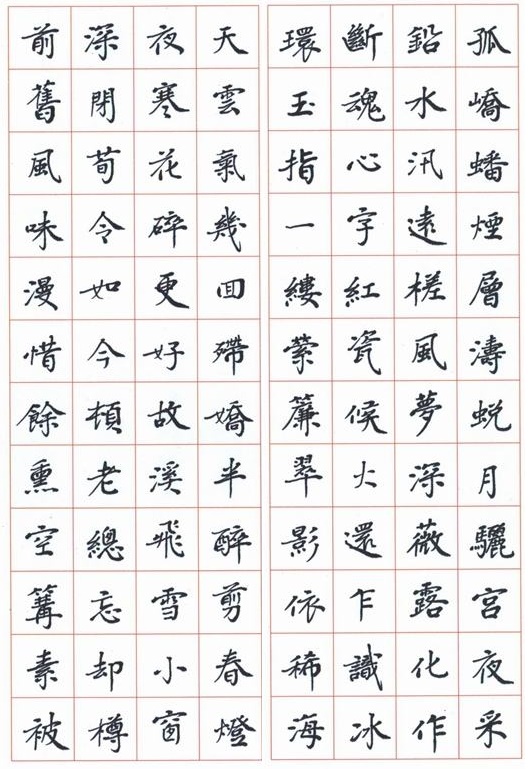 孤嶠蟠煙層濤蛻月驪宮夜采
鉛水汛遠槎風夢深薇露化作
斷魂心字紅瓷候火還乍識冰
環玉指一縷縈簾翠影依稀海
天雲氣幾回殢嬌半醉剪春燈
夜寒花碎更好故溪飛雪小窗
深閉荀令如今頓老總忘却樽
前舊風味漫惜餘熏空篝素被